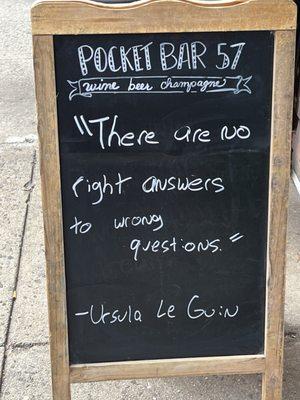 POCKET BAR 57
wine beer champagne
"There are no
right answers
to wrong
questions."
-Ursula Le Guin